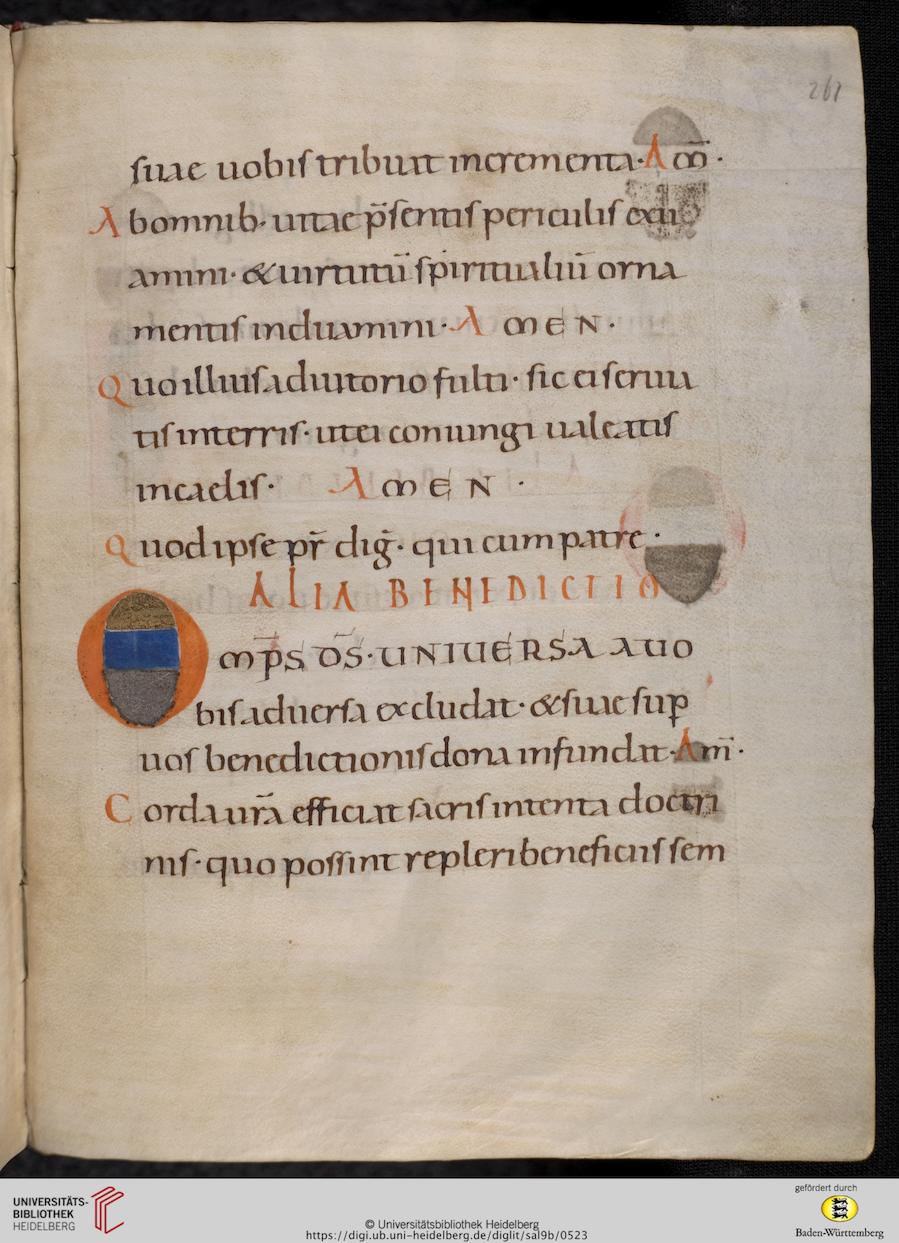 261
suae uobis tribuat incrementa· Am̄·
Abomnib· uitae p̄sentis periculis exu
amini· & uirtutū spiritualiū orna
mentis induamini· AMEN·
Quo illius adiutorio fulti· sic ei serui
tis interris· ut ei coniungi ualeatis
incaelis· AMEN·
Quod ipse pr̄ dig̃· qui cum patre·
ALIA BENEDICTIO
OMP̄S D̄S· UNIUERSA A UO
bis aduersa excludat· & suae sup̱
uos benedictionis dona infundat· Am̄·
Corda ur̄a efficiat sacris intenta doctri
nis· quo possint repleri beneficiis sem
UNIVERSITÄTS-
BIBLIOTHEK
HEIDELBERG
© Universitätsbibliothek Heidelberg
https://digi.ub.uni-heidelberg.de/diglit/sal9b/0523
gefördert durch
Baden-Württemberg